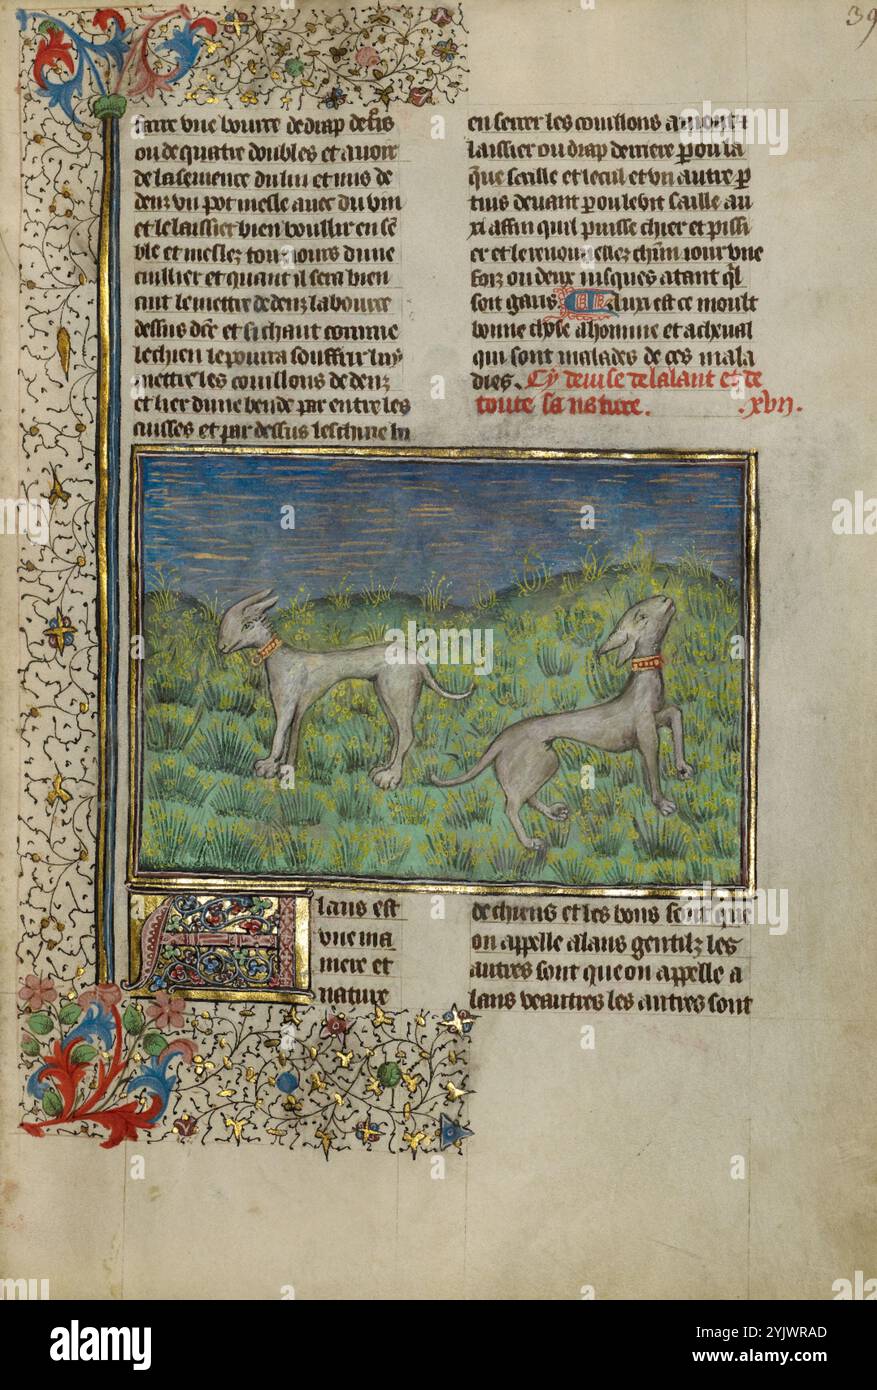 39
faire une bourre de drap de fus
ou de quatre doubles et avoir
de la semence du lin et mis de
denz un pot mesle avec du vin
et le laissier bien boullir en sem
ble et meslez tousiours dune
cuillier et quant il sera bien
cuit le mettre dedenz la bourre
dessus dce et si chaut comme
le chien le pourra souffrir luy
mettre les couillons dedenz
et lier dune bende par entre les
cuisses et par dessus leschine lu
en serrer les couillons amont
laissier ou drap derriere p ou la
que saille et le cul et un autre p
tius devant p ou le vit saille au
xi affin quil puisse chier et piss
er et le renouvellez chun iour une
foiz ou deux iusques a tant ql
soit gary Et aux est ce moult
bonne chose a homme et a cheval
qui sont malades de ces mala
dies. Cy devise de lalant et de
toute sa nature. .xvii.
Alans est
une ma
niere et
nature
de chiens et les bons sont que
on appelle alans gentilz les
autres sont que on appelle a
lans veautres les autres sont
alamy
Image ID: 2YJWRAD
www.alamy.com